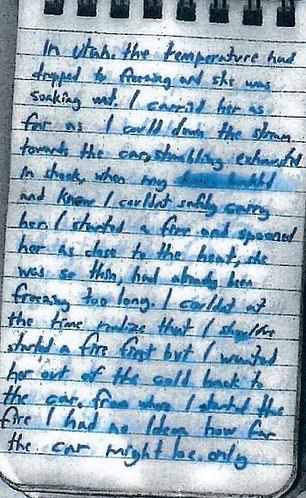 In Utah. the temperature had
dropped to freezing and she was
soaking wet. I carried her as
far as I could down the stream
towards the car, stumbling exhausted
in shock, when my
and knew I couldnt safely carry
her. I started a fire and spooned
her as close to the heat, she
was so thin, had already been
freezing too long. I couldet at
the time realize that I should've
started a fire first but I wanted
her out of the cold back to
the car. from when I started the
fire I had no Idea how far
the car might be. only